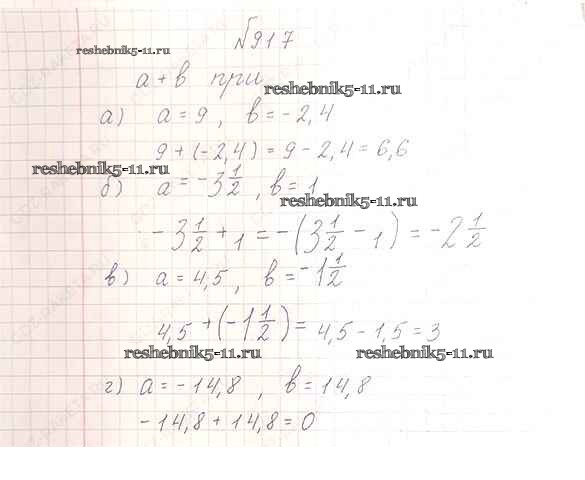 №917
reshebnik5-11.ru
a + b при
reshebnik5-11.ru
а) a = 9, b = -2,4
9 + (-2,4) = 9 - 2,4 = 6,6
reshebnik5-11.ru
б) a = -3 1/2, b = 1
reshebnik5-11.ru
-3 1/2 + 1 = -(3 1/2 - 1) = -2 1/2
в) a = 4,5, b = -1 1/2
4,5 + (-1 1/2) = 4,5 - 1,5 = 3
reshebnik5-11.ru reshebnik5-11.ru
г) a = -14,8, b = 14,8
-14,8 + 14,8 = 0